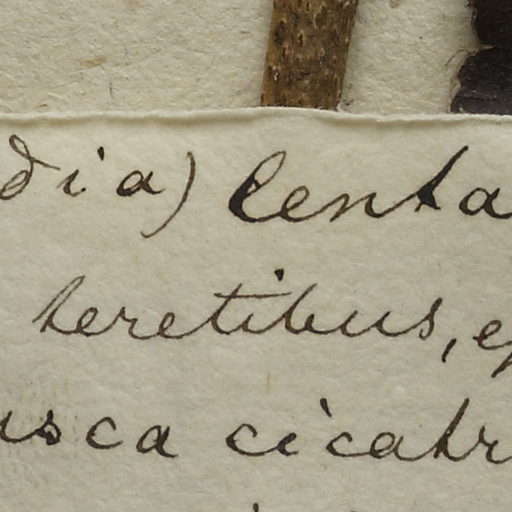 dia) lenta
heretibus, ep
usca cicatr